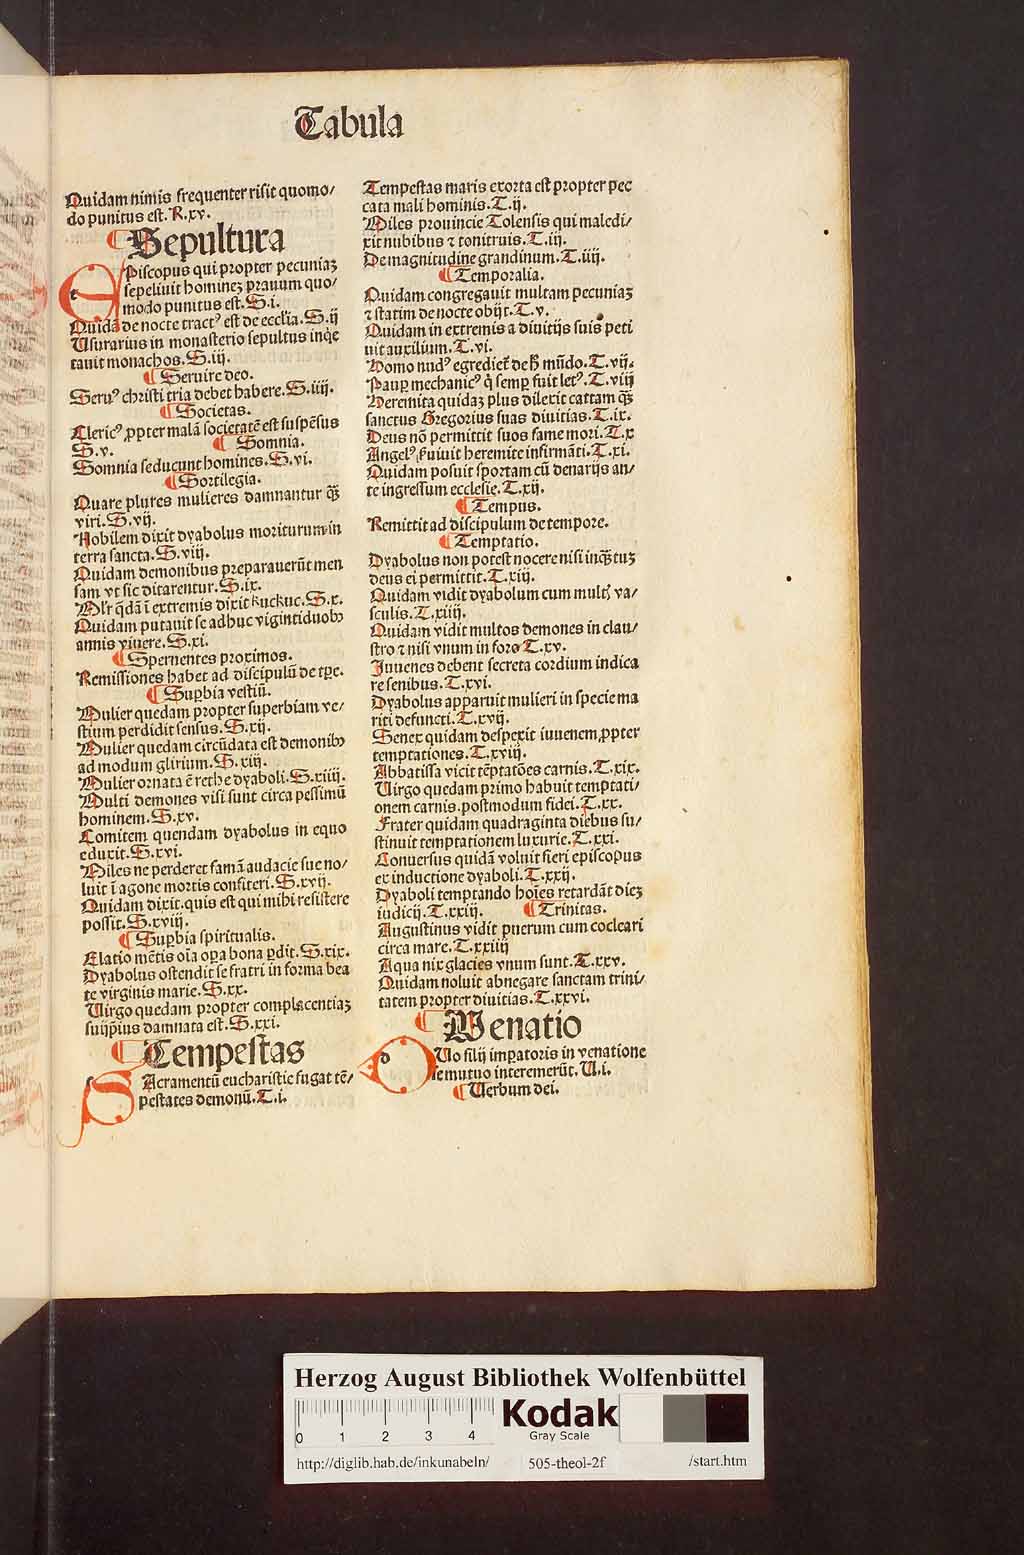 Tabula
Quidam nimis frequenter risit quomo/
do punitus est. R.xv.
¶ Sepultura
EPiscopus qui propter pecuniaꝫ
sepeliuit homineꝫ prauum quo/
modo punitus est. S.i.
Quidā de nocte tractꝰ est de eccl'ia. S.ij
Usurarius in monasterio sepultus inqͥe
tauit monachos. S.iij.
¶ Seruire deo.
Seruꝰ christi tria debet habere. S.iiij.
¶ Societas.
Clericꝰ ꝓpter malā societatē est suspēsus
S.v. ¶ Somnia.
Somnia seducunt homines. S.vi.
¶ Sortilegia.
Quare plures mulieres damnantur qͣꝫ
viri. S.vij.
Nobilem dixit dyabolus moriturum in
terra sancta. S.viij.
Quidam demonibus preparauerūt men
sam vt sic ditarentur. S.ix.
Ml'r q̄dā ī extremis dixit kuckuc. S.x.
Quidam putauit se adhuc vigintiduobꝰ
annis viuere. S.xi.
¶ Spernentes proximos.
Remissiones habet ad discipulū de tp̄e.
¶ Suꝑbia vestiū.
Mulier quedam propter superbiam ve/
stium perdidit sensus. S.xij.
Mulier quedam circūdata est demonibꝰ
ad modum glirium. S.xiij.
Mulier ornata ē rethe dyaboli. S.xiiij.
Multi demones visi sunt circa pessimū
hominem. S.xv.
Comitem quendam dyabolus in equo
eduxit. S.xvi.
Miles ne perderet famā audacie sue no/
luit ī agone mortis confiteri. S.xvij.
Quidam dixit. quis est qui mihi resistere
possit. S.xviij.
¶ Suꝑbia spiritualis.
Elatio mētis oīa oꝑa bona ꝑdit. S.xix.
Dyabolus ostendit se fratri in forma bea
te virginis marie. S.xx.
Uirgo quedam propter complacentiaꝫ
suijp̄ius damnata est. S.xxi.
¶ Tempestas
SAcramentū eucharistie fugat tē/
pestates demonū. T.i.
Tempestas maris exorta est propter pec
cata mali hominis. T.ij.
Miles prouincie Tolensis qui maledi/
xit nubibus ⁊ tonitruis. T.iij.
De magnitudine grandinum. T.iiij.
¶ Temporalia.
Quidam congregauit multam pecuniaꝫ
⁊ statim de nocte obijt. T.v.
Quidam in extremis a diuitijs suis peti
uit auxilium. T.vi.
Homo nudꝰ egrediet̄ de h̄ mūdo. T.vij.
Pauꝑ mechanicꝰ q̄ semꝑ fuit letꝰ. T.viij
Heremita quidaꝫ plus dilexit cattam qͣꝫ
sanctus Gregorius suas diuitias. T.ix.
Deus nō permittit suos fame mori. T.x
Angelꝰ ẜuiuit heremite infirmāti. T.xi.
Quidam posuit sportam cū denarijs an/
te ingressum ecclesie. T.xij.
¶ Tempus.
Remittit ad discipulum de tempore.
¶ Temptatio.
Dyabolus non potest nocere nisi inqͣꝫtuꝫ
deus ei permittit. T.xiij.
Quidam vidit dyabolum cum multꝭ va/
sculis. T.xiiij.
Quidam vidit multos demones in clau/
stro ⁊ nisi vnum in foro T.xv.
Juuenes debent secreta cordium indica
re senibus. T.xvi.
Dyabolus apparuit mulieri in specie ma
riti defuncti. T.xvij.
Senex quidam despexit iuuenem ꝓpter
temptationes. T.xviij.
Abbatissa vicit tēptatōes carnis. T.xix.
Uirgo quedam primo habuit temptati/
onem carnis. postmodum fidei. T.xx.
Frater quidam quadraginta diebus su/
stinuit temptationem luxurie. T.xxi.
Conuersus quidā voluit fieri episcopus
ex inductione dyaboli. T.xxij.
Dyaboli temptando hoīes retardāt dieꝫ
iudicij. T.xxiij. ¶ Trinitas.
Augustinus vidit puerum cum cocleari
circa mare. T.xxiiij
Aqua nix glacies vnum sunt. T.xxv.
Quidam noluit abnegare sanctam trini/
tatem propter diuitias. T.xxvi.
¶ Uenatio
DUo filij imꝑatoris in venatione
se mutuo interemerūt. U.i.
¶ Uerbum dei.
Herzog August Bibliothek Wolfenbüttel
0 1 2 3 4
Kodak
Gray Scale
http://diglib.hab.de/inkunabeln/ 505-theol-2f /start.htm